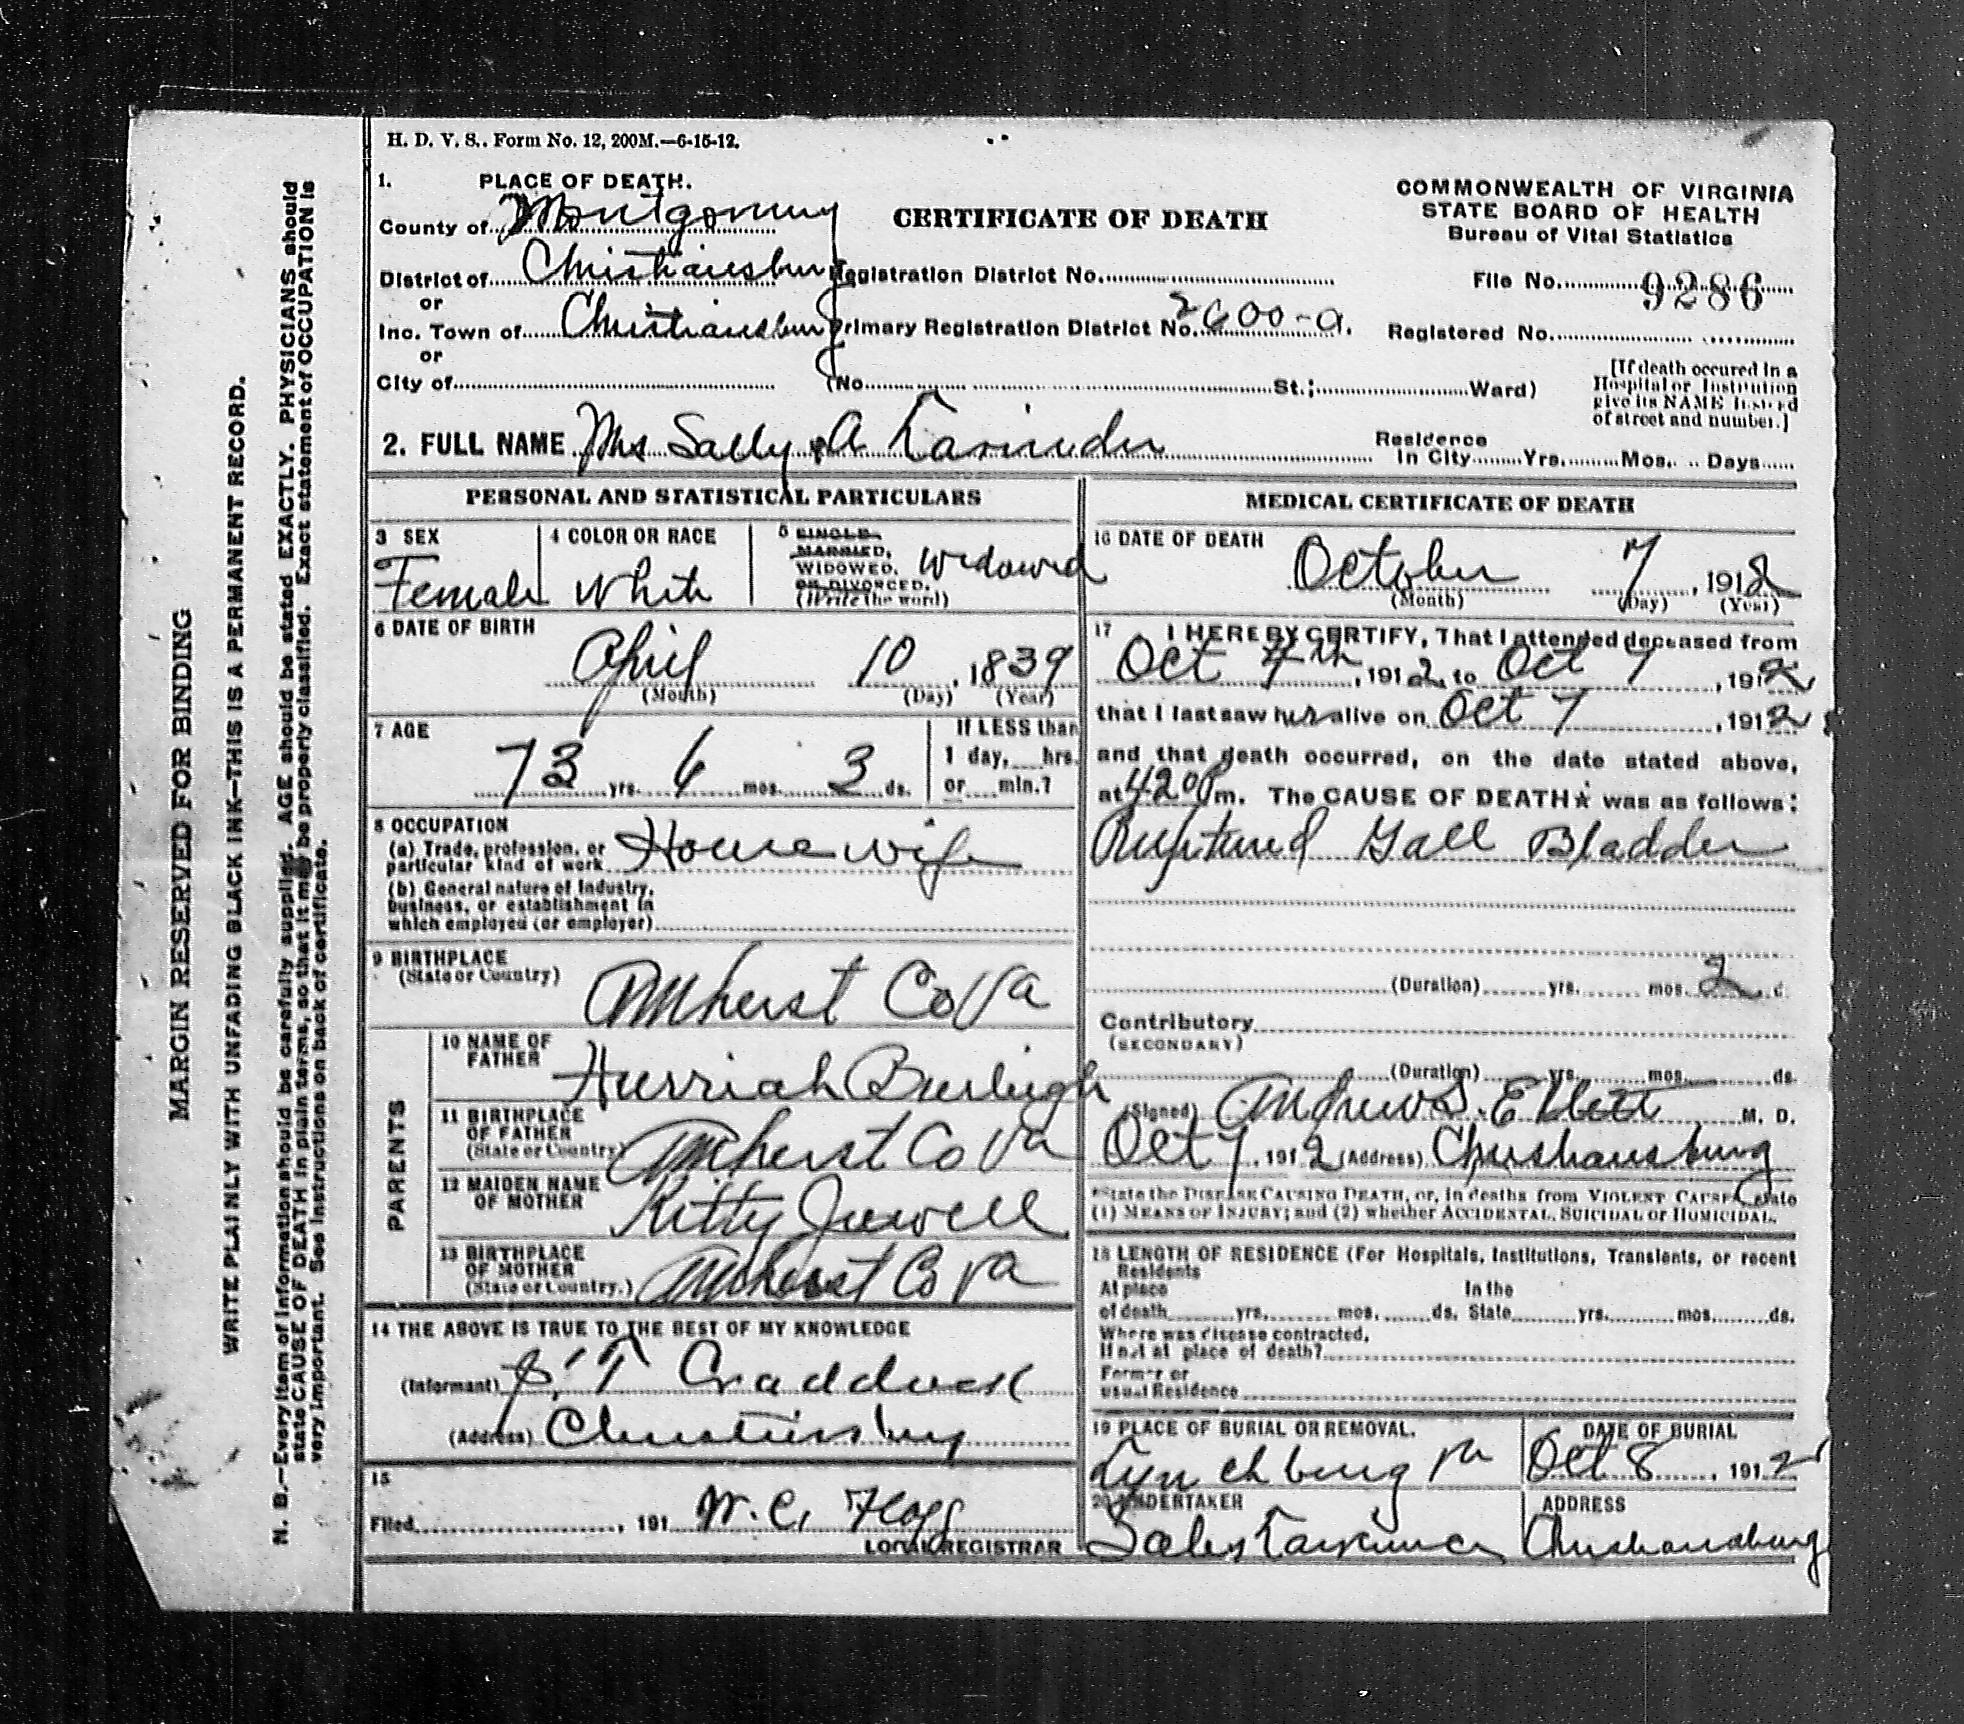 H. D. V. S.. Form No. 12, 200M.—6-15-12.
1. PLACE OF DEATH.
County of Montgomery
CERTIFICATE OF DEATH
COMMONWEALTH OF VIRGINIA
STATE BOARD OF HEALTH
Bureau of Vital Statistics
District of Christiansburg Registration District No.
File No. 9286
or
Inc. Town of Christiansburg Primary Registration District No. 2600-a.
Registered No.
or
City of (No. St.; Ward)
[If death occured in a
Hospital or Institution
give its NAME instead
of street and number.]
2. FULL NAME Mrs Sally A
Residence
In City Yrs. Mos. Days
PERSONAL AND STATISTICAL PARTICULARS
3 SEX
Female
4 COLOR OR RACE
White
5 SINGLE,
MARRIED,
WIDOWED,
OR DIVORCED.
(Write the word)
Widowed
6 DATE OF BIRTH
April 10, 1839
(Month) (Day) (Year)
7 AGE
73 yrs. 6 mos. 3 ds.
If LESS than
1 day, hrs.
or min.?
8 OCCUPATION
(a) Trade, profession, or
particular kind of work House wife
(b) General nature of Industry,
business, or establishment in
which employed (or employer)
9 BIRTHPLACE
(State or Country) Amherst Co Va
PARENTS
10 NAME OF
FATHER Hurriah Burleigh
11 BIRTHPLACE
OF FATHER
(State or Country) Amherst Co Va
12 MAIDEN NAME
OF MOTHER Kitty Jewell
13 BIRTHPLACE
OF MOTHER
(State or Country.) Amherst Co Va
14 THE ABOVE IS TRUE TO THE BEST OF MY KNOWLEDGE
(Informant) T Craddock
(Address)
15
Filed , 191 W. C. Flagg
LOCAL REGISTRAR
MEDICAL CERTIFICATE OF DEATH
16 DATE OF DEATH
October 7, 1912
(Month) (Day) (Year)
17 I HEREBY CERTIFY, That I attended deceased from
Oct , 1912, to Oct 7, 1912
that I last saw her alive on Oct 7, 1912
and that death occurred, on the date stated above,
at 420 P m. The CAUSE OF DEATH* was as follows:
Ruptured Gall Bladder
(Duration) yrs. mos. 2 d
Contributory
(SECONDARY)
(Duration) yrs. mos. ds.
(Signed) Andrew S. Ellett M. D.
Oct 7, 1912 (Address) Christiansburg
*State the DISEASE CAUSING DEATH, or, in deaths from VIOLENT CAUSES, state
(1) MEANS OF INJURY; and (2) whether ACCIDENTAL, SUICIDAL or HOMICIDAL.
18 LENGTH OF RESIDENCE (For Hospitals, Institutions, Transients, or recent
Residents
At place In the
of death yrs. mos. ds. State yrs. mos. ds.
Where was disease contracted,
If not at place of death?
Former or
usual Residence
19 PLACE OF BURIAL OR REMOVAL.
Lynchburg Va
DATE OF BURIAL
Oct 8, 1912
20 UNDERTAKER
ADDRESS
Christiansburg
MARGIN RESERVED FOR BINDING
WRITE PLAINLY WITH UNFADING BLACK INK—THIS IS A PERMANENT RECORD.
N. B.—Every item of information should be carefully supplied. AGE should be stated EXACTLY. PHYSICIANS should
state CAUSE OF DEATH in plain terms, so that it may be properly classified. Exact statement of OCCUPATION is
very important. See instructions on back of certificate.